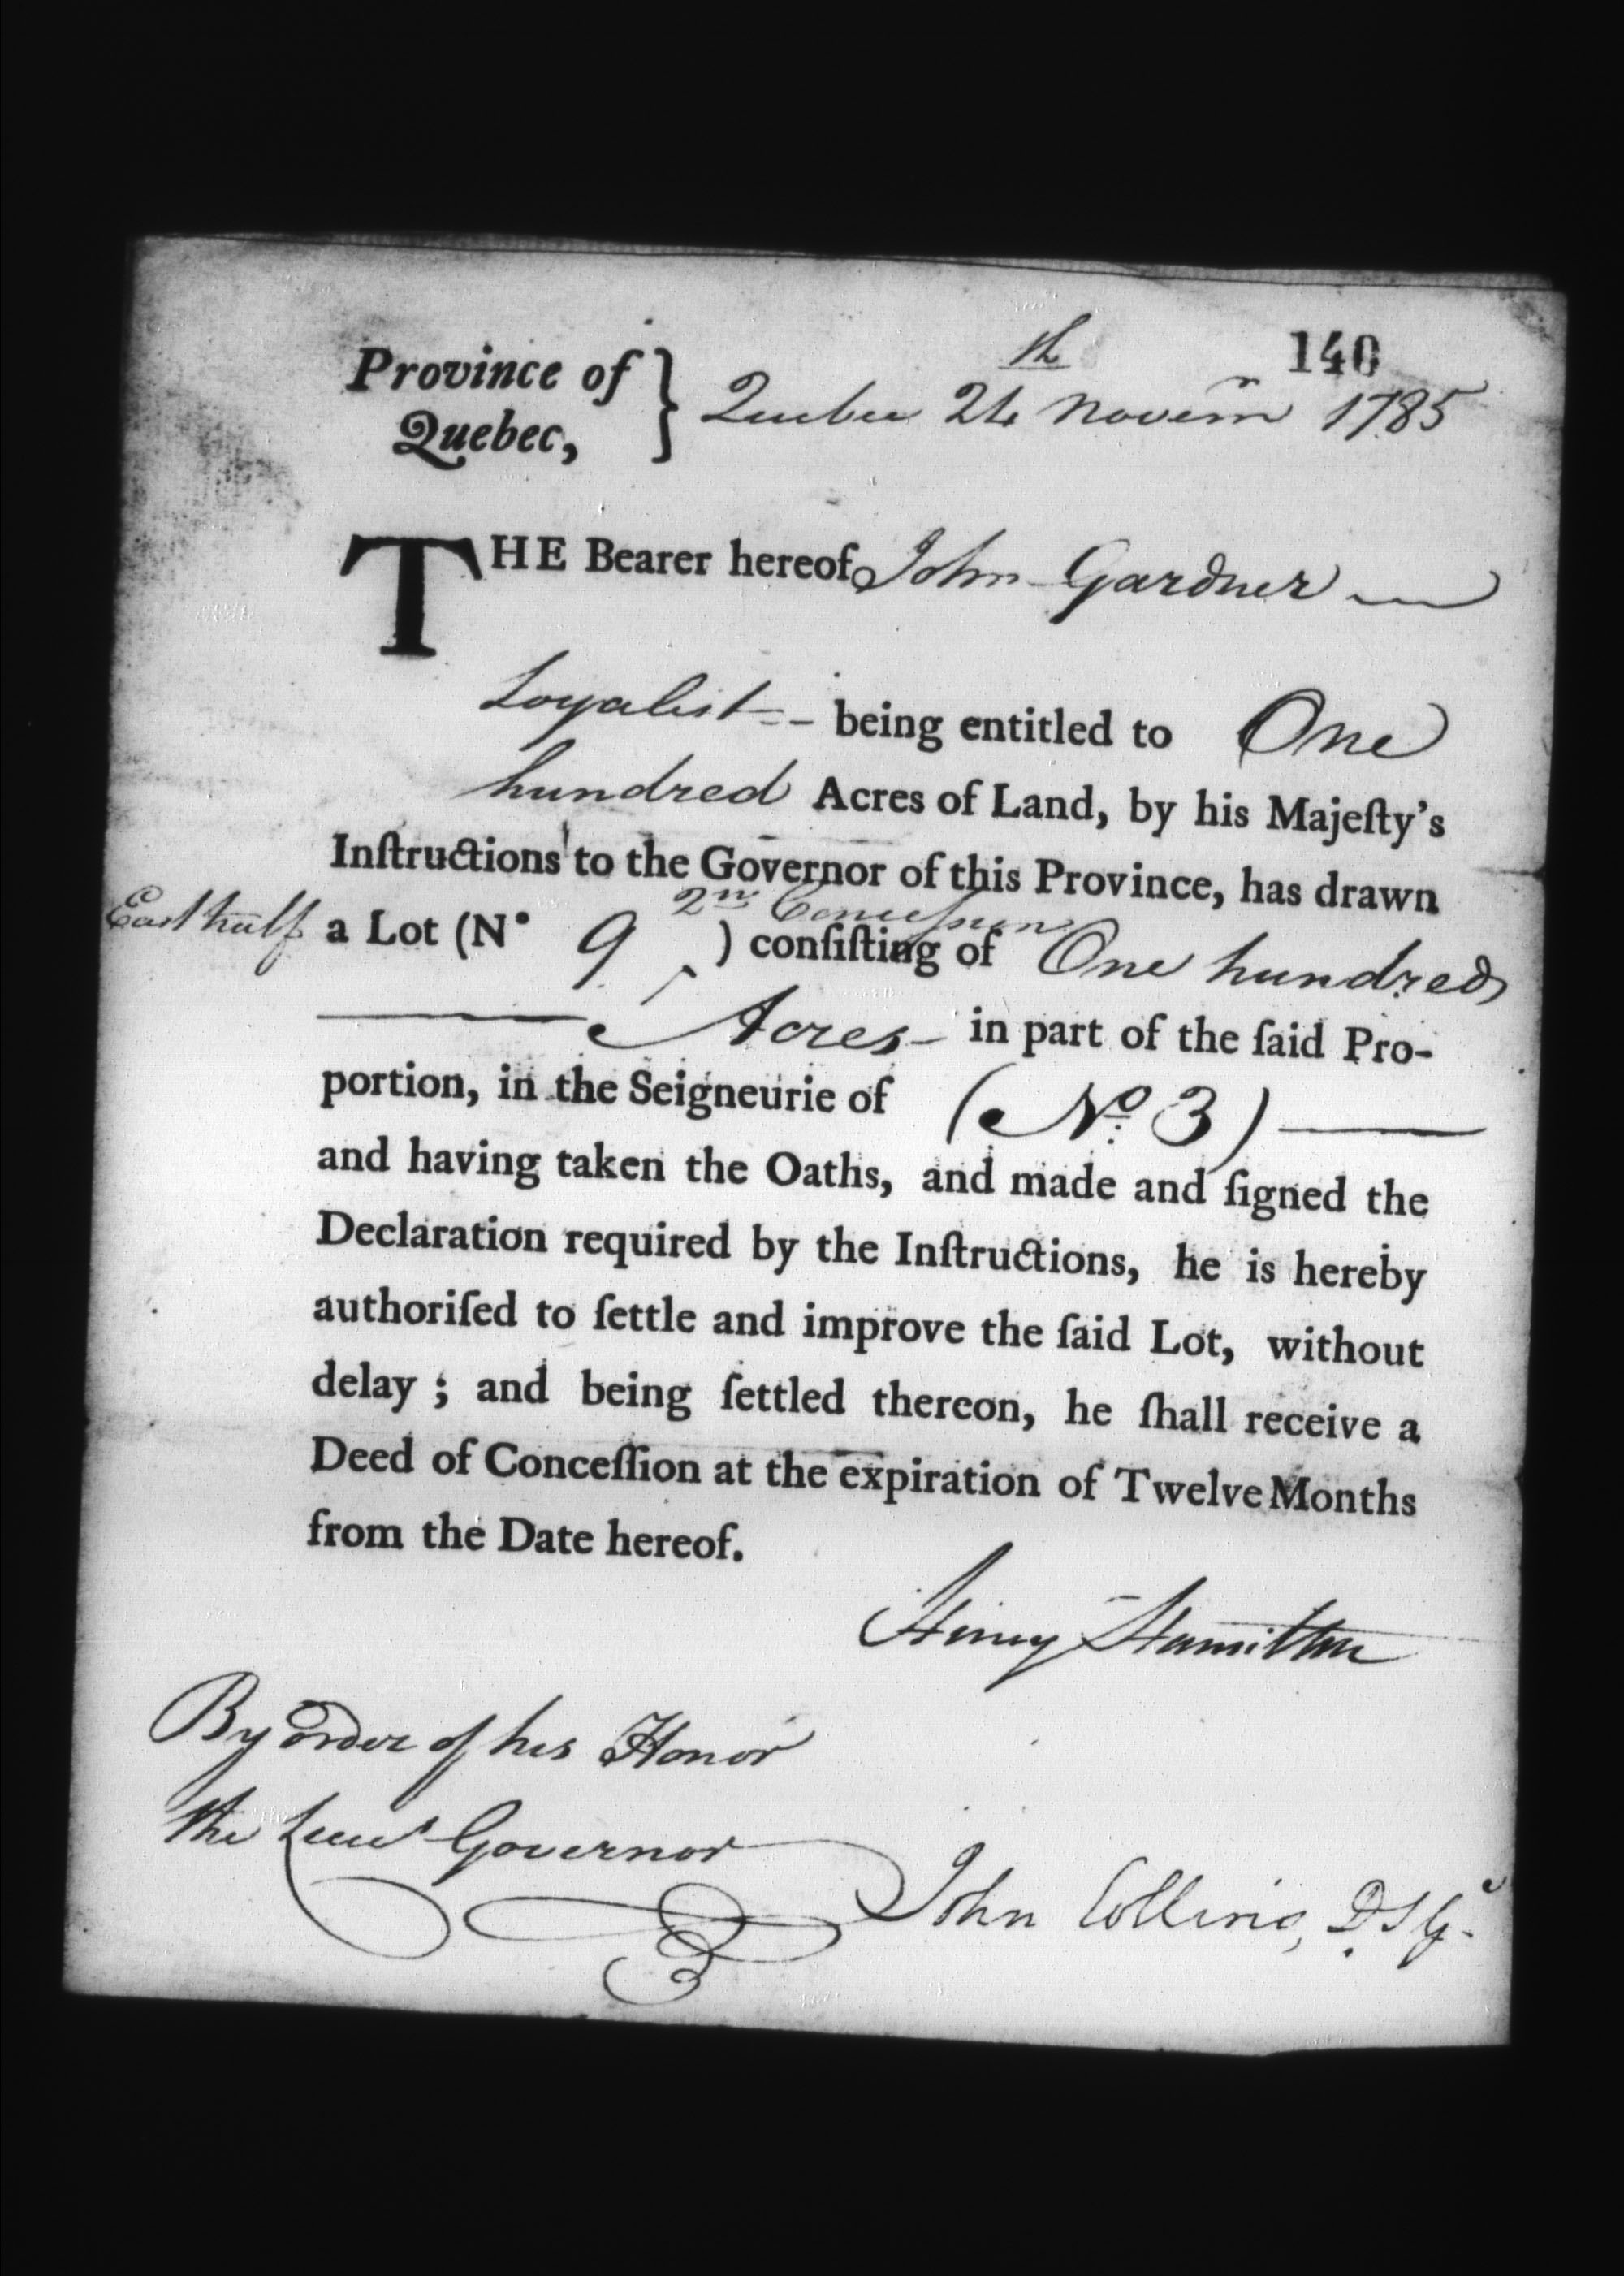 140
Province of Quebec, } Quebec 24th Novemr 1785
THE Bearer hereof John Gardner
Loyalist being entitled to One
hundred Acres of Land, by his Majeſty's
Inſtructions to the Governor of this Province, has drawn
2nd Conceſsion
East half a Lot (N° 9 ) conſiſting of One hundred
Acres in part of the ſaid Pro-
portion, in the Seigneurie of (No. 3)
and having taken the Oaths, and made and ſigned the
Declaration required by the Inſtructions, he is hereby
authoriſed to ſettle and improve the ſaid Lot, without
delay ; and being ſettled thereon, he ſhall receive a
Deed of Conceſſion at the expiration of Twelve Months
from the Date hereof.
Henry Hamilton
By order of his Honor
the Lieut Governor
John Collins, D S G